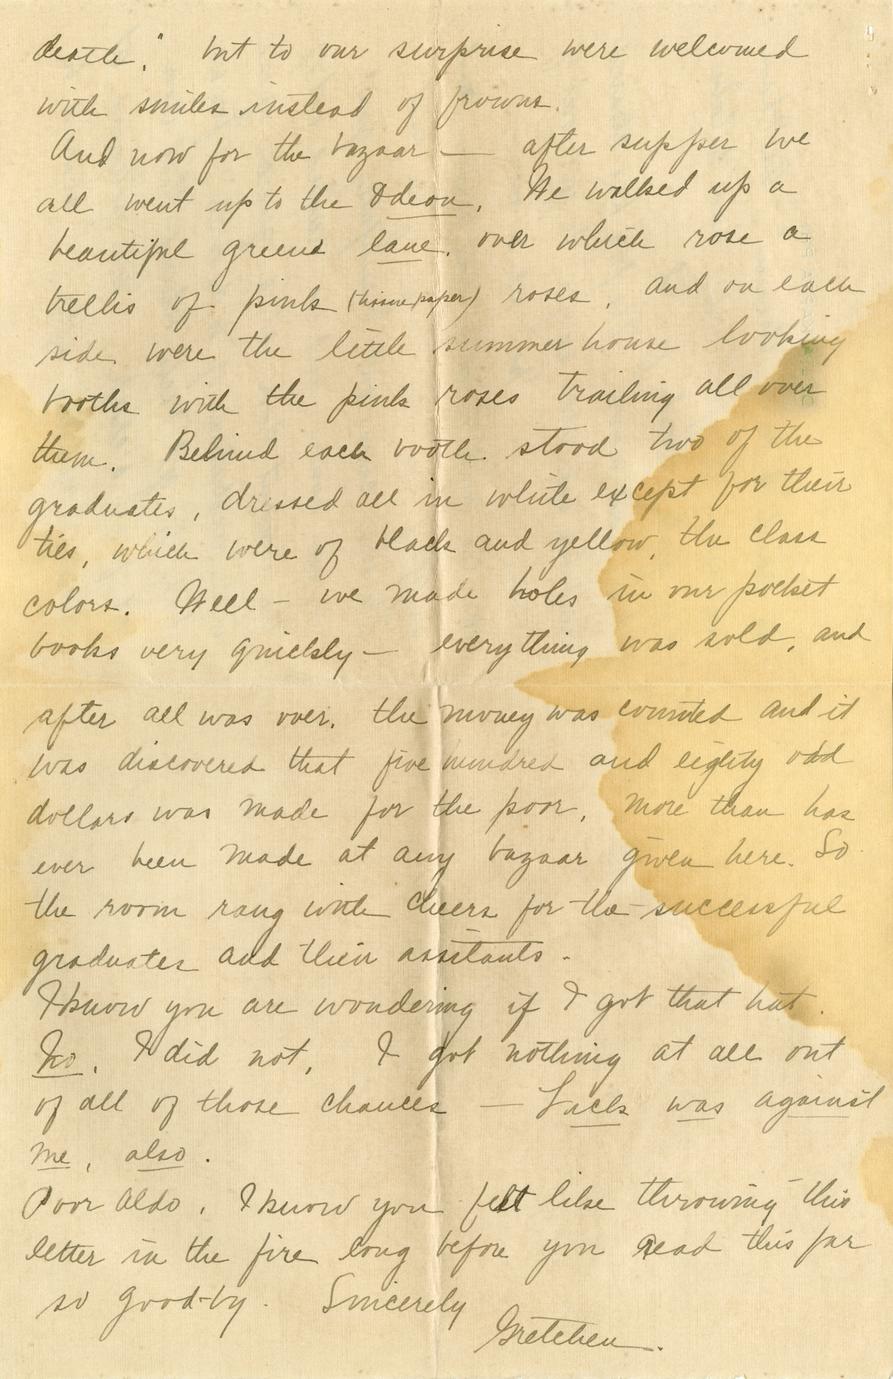 death." but to our surprise were welcomed
with smiles instead of frowns.
And now for the bazaar — after supper we
all went up to the Odeon. We walked up a
beautiful green lane, over which rose a
trellis of pink (tissue paper) roses, and on each
side were the little summer house looking
booths with the pink roses trailing all over
them. Behind each booth stood two of the
graduates, dressed all in white except for their
ties, which were of black and yellow, the class
colors. Well – we made holes in our pocket
books very quickly – everything was sold, and
after all was over, the money was counted and it
was discovered that five hundred and eighty odd
dollars was made for the poor, more than has
ever been made at any bazaar given here. So
the room rang with cheers for the successful
graduates and their assitants.
I know you are wondering if I got that hat.
No, I did not, I got nothing at all out
of all of those chances — Luck was against
me, also.
Poor Aldo, I know you felt like throwing this
letter in the fire long before you read this far
so good-by. Sincerely
Gretchen.